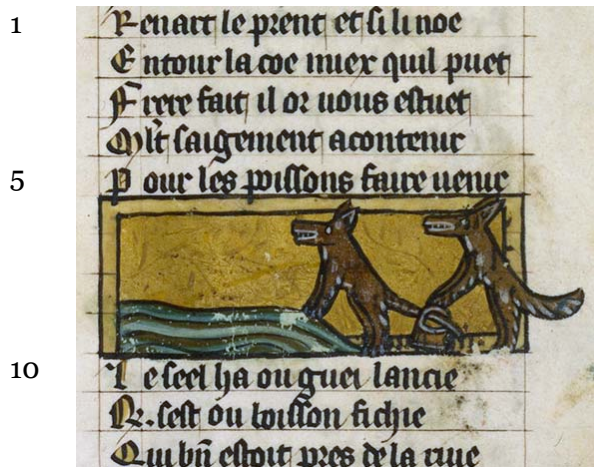 1
Renart le prent et si li noe
Entour la coe miex quil puet
Frere fait il or uous estuet
Mlt saigement acontenir
5
Pour les poissons faire uenir
10
Le seel ha ou guei lancie
R. sest ou boisson fichie
Qui bn̄ estoit pres de la riue